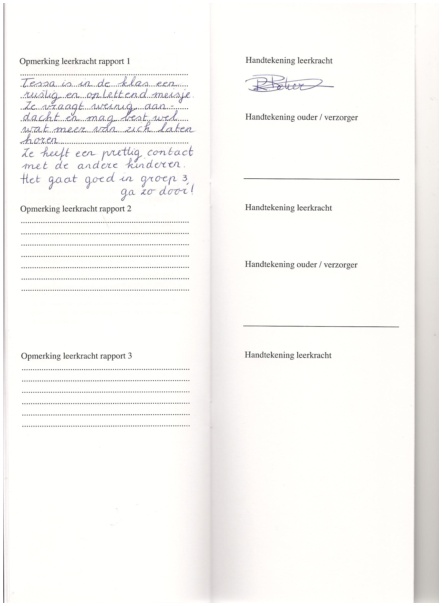 Opmerking leerkracht rapport 1
Tessa is in de klas een
rustig en oplettend meisje.
Ze vraagt weinig aan-
dacht en mag best wel
wat meer van zich laten
horen.
Ze heeft een prettig contact
met de andere kinderen.
Het gaat goed in groep 3,
ga zo door!
Opmerking leerkracht rapport 2
Opmerking leerkracht rapport 3
Handtekening leerkracht
Handtekening ouder / verzorger
Handtekening leerkracht
Handtekening ouder / verzorger
Handtekening leerkracht